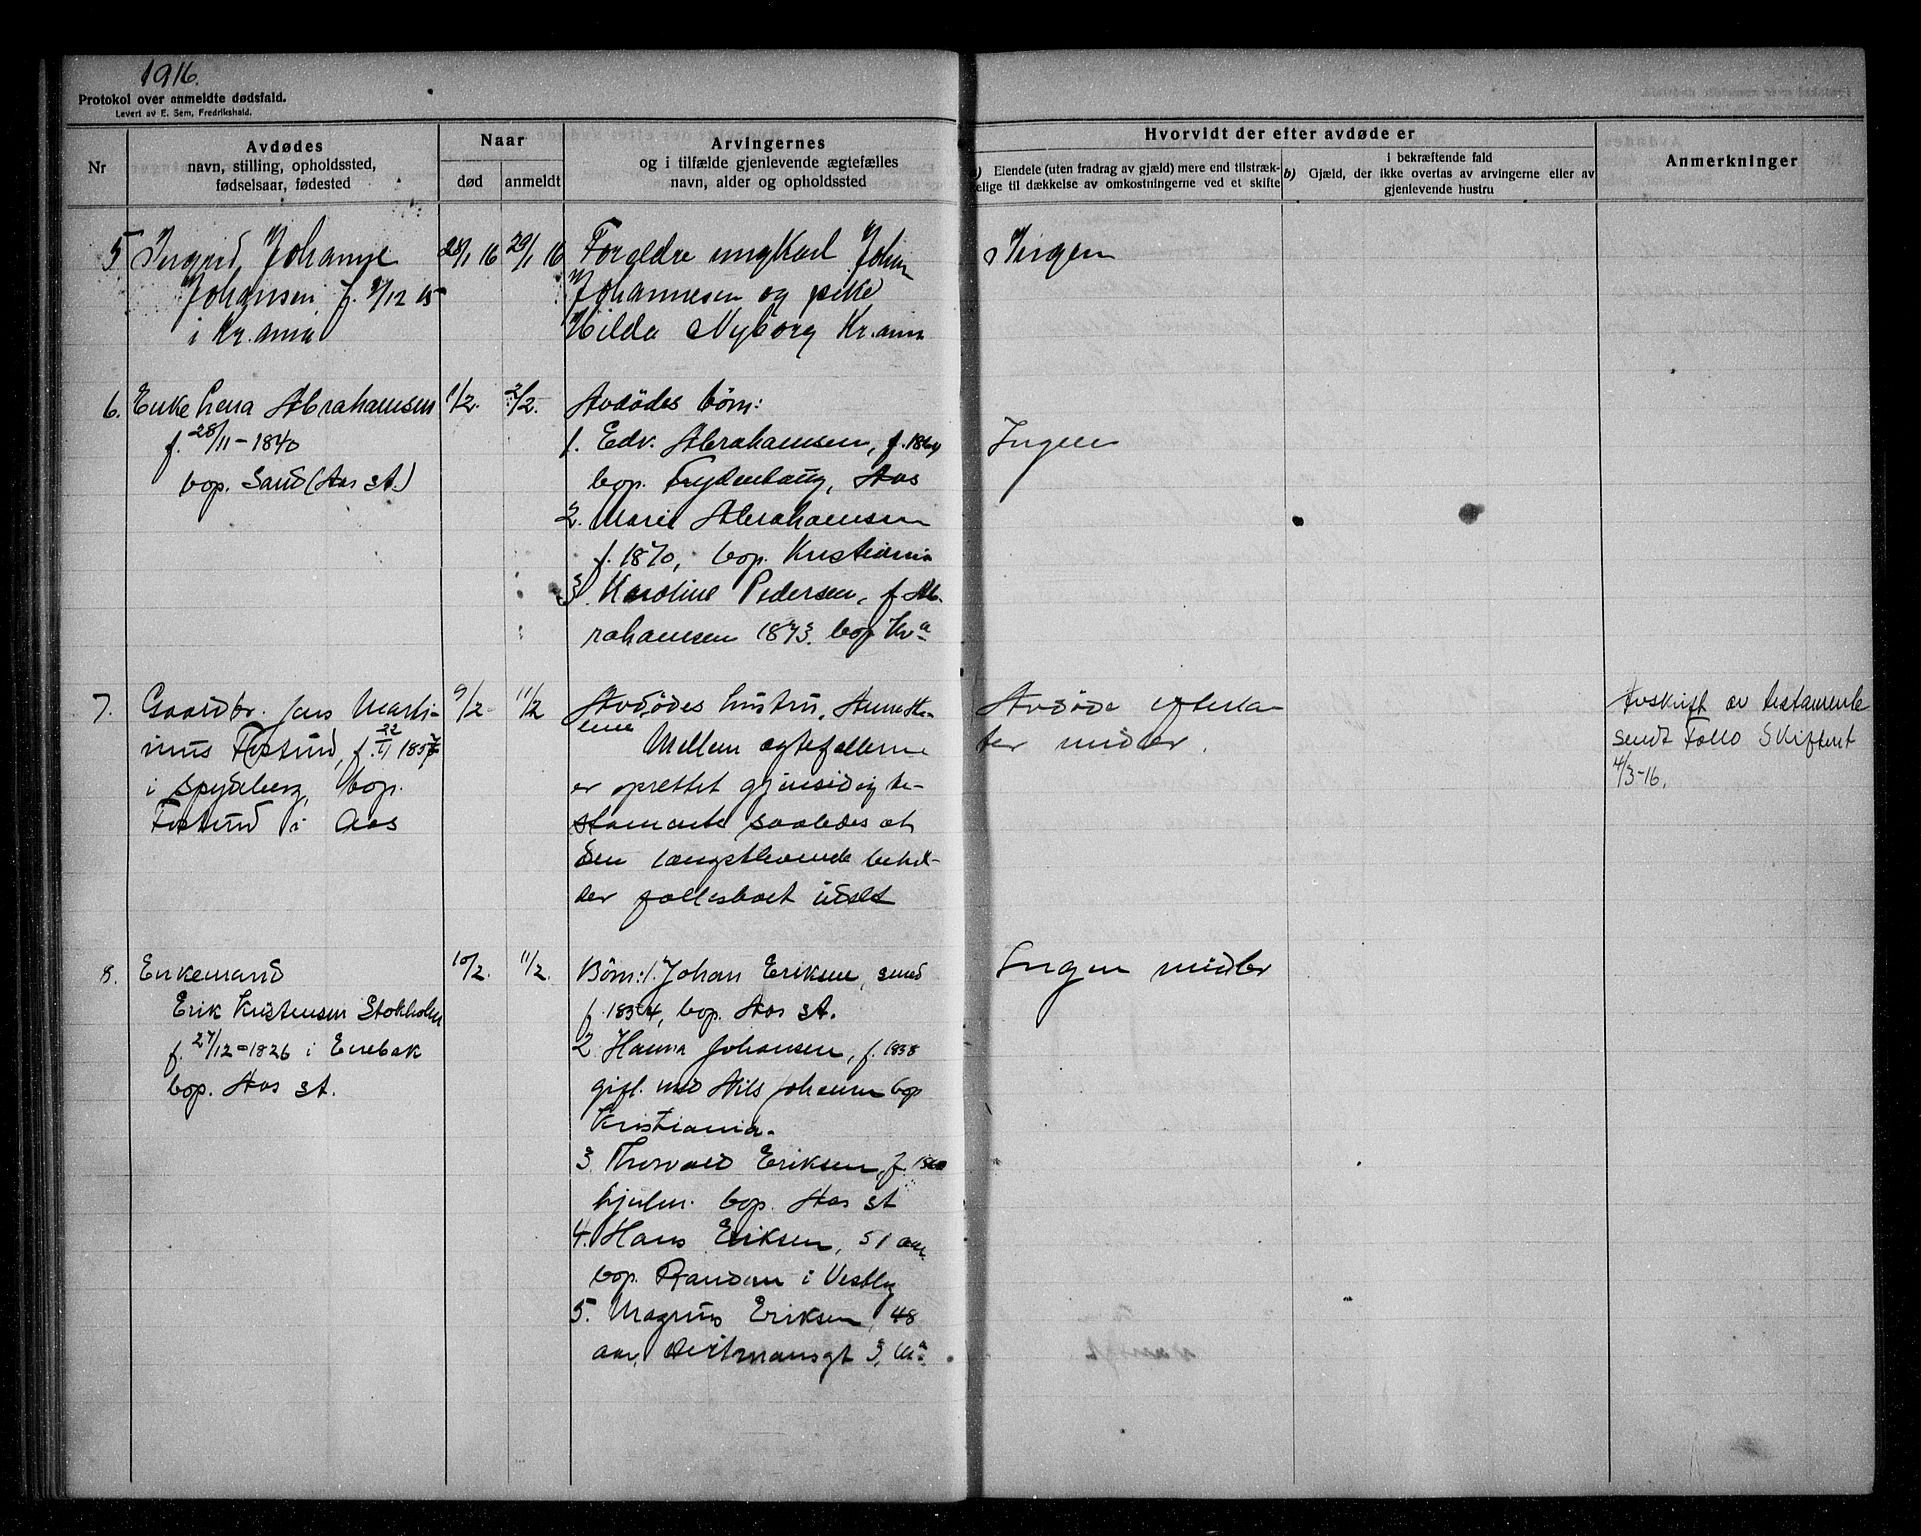 1916.
Protokol over anmeldte dødsfald.
Levert av E. Sem, Fredrikshald.
Nr
Avdødes
navn, stilling, opholdssted,
fødselsaar, fødested
Naar
død
anmeldt
Arvingernes
og i tilfælde gjenlevende ægtefælles
navn, alder og opholdssted
Hvorvidt der efter avdøde er
a) Eiendele (uten fradrag av gjæld) mere end tilstræk-
kelige til dækkelse av omkostningerne ved et skifte
i bekræftende fald
b) Gjæld, der ikke overtas av arvingerne eller av
gjenlevende hustru
Anmerkninger
5 Johanne
Johansen f. 9/12 15
i Kr.ania
28/1 16
29/1 16
Foreldre ungkarl Johan
Johannesen og pike
Hilda Nyborg Kr.ania
Ingen
6. Enke Lena Abrahamsen
f. 28/11 - 1840
bop. Sand (Aas st.)
1/2.
2/2.
Avdødes børn:
1. Edv. Abrahamsen, f. 1864
bop. Frydenhaug, Aas
2. Marie Abrahamsen
f. 1870, bop. Kristiania
3. Karoline Pedersen, f. Ab-
rahamsen 1873. bop. Kr.a
Ingen
7. Gaardbr. Jens Marti-
nius Fostrud, f. 22/11 1857
i Spydeberg, bop.
Fostrud i Aas
9/2
11/2
Avdødes hustru,
Mellem ægtefællerne
er oprettet gjensidig te-
stamente saaledes at
den længstlevende behol-
der fællesboet udelt
Avdøde efterla-
ter midler.
Avskrift av testamente
sendt Follo Skifteret
4/3-16.
8. Enkemand
Erik Kristensen Stokholm
f. 27/12-1826 i Enebak
bop. Aas st.
10/2.
11/2.
Børn: 1. Johan Eriksen, smed
f. 1854, bop. Aas st.
2 Hanna Johansen, f. 1858
gift. med Nils Johansen bop
Kristiania.
3. Thorvald Eriksen, f.
hjulm. bop. Aas st
4. Hans Eriksen, 51 aar
bop. Randem i Vestby
5. Magnus Eriksen, 48
aar, 3, Kr.a
Ingen midler